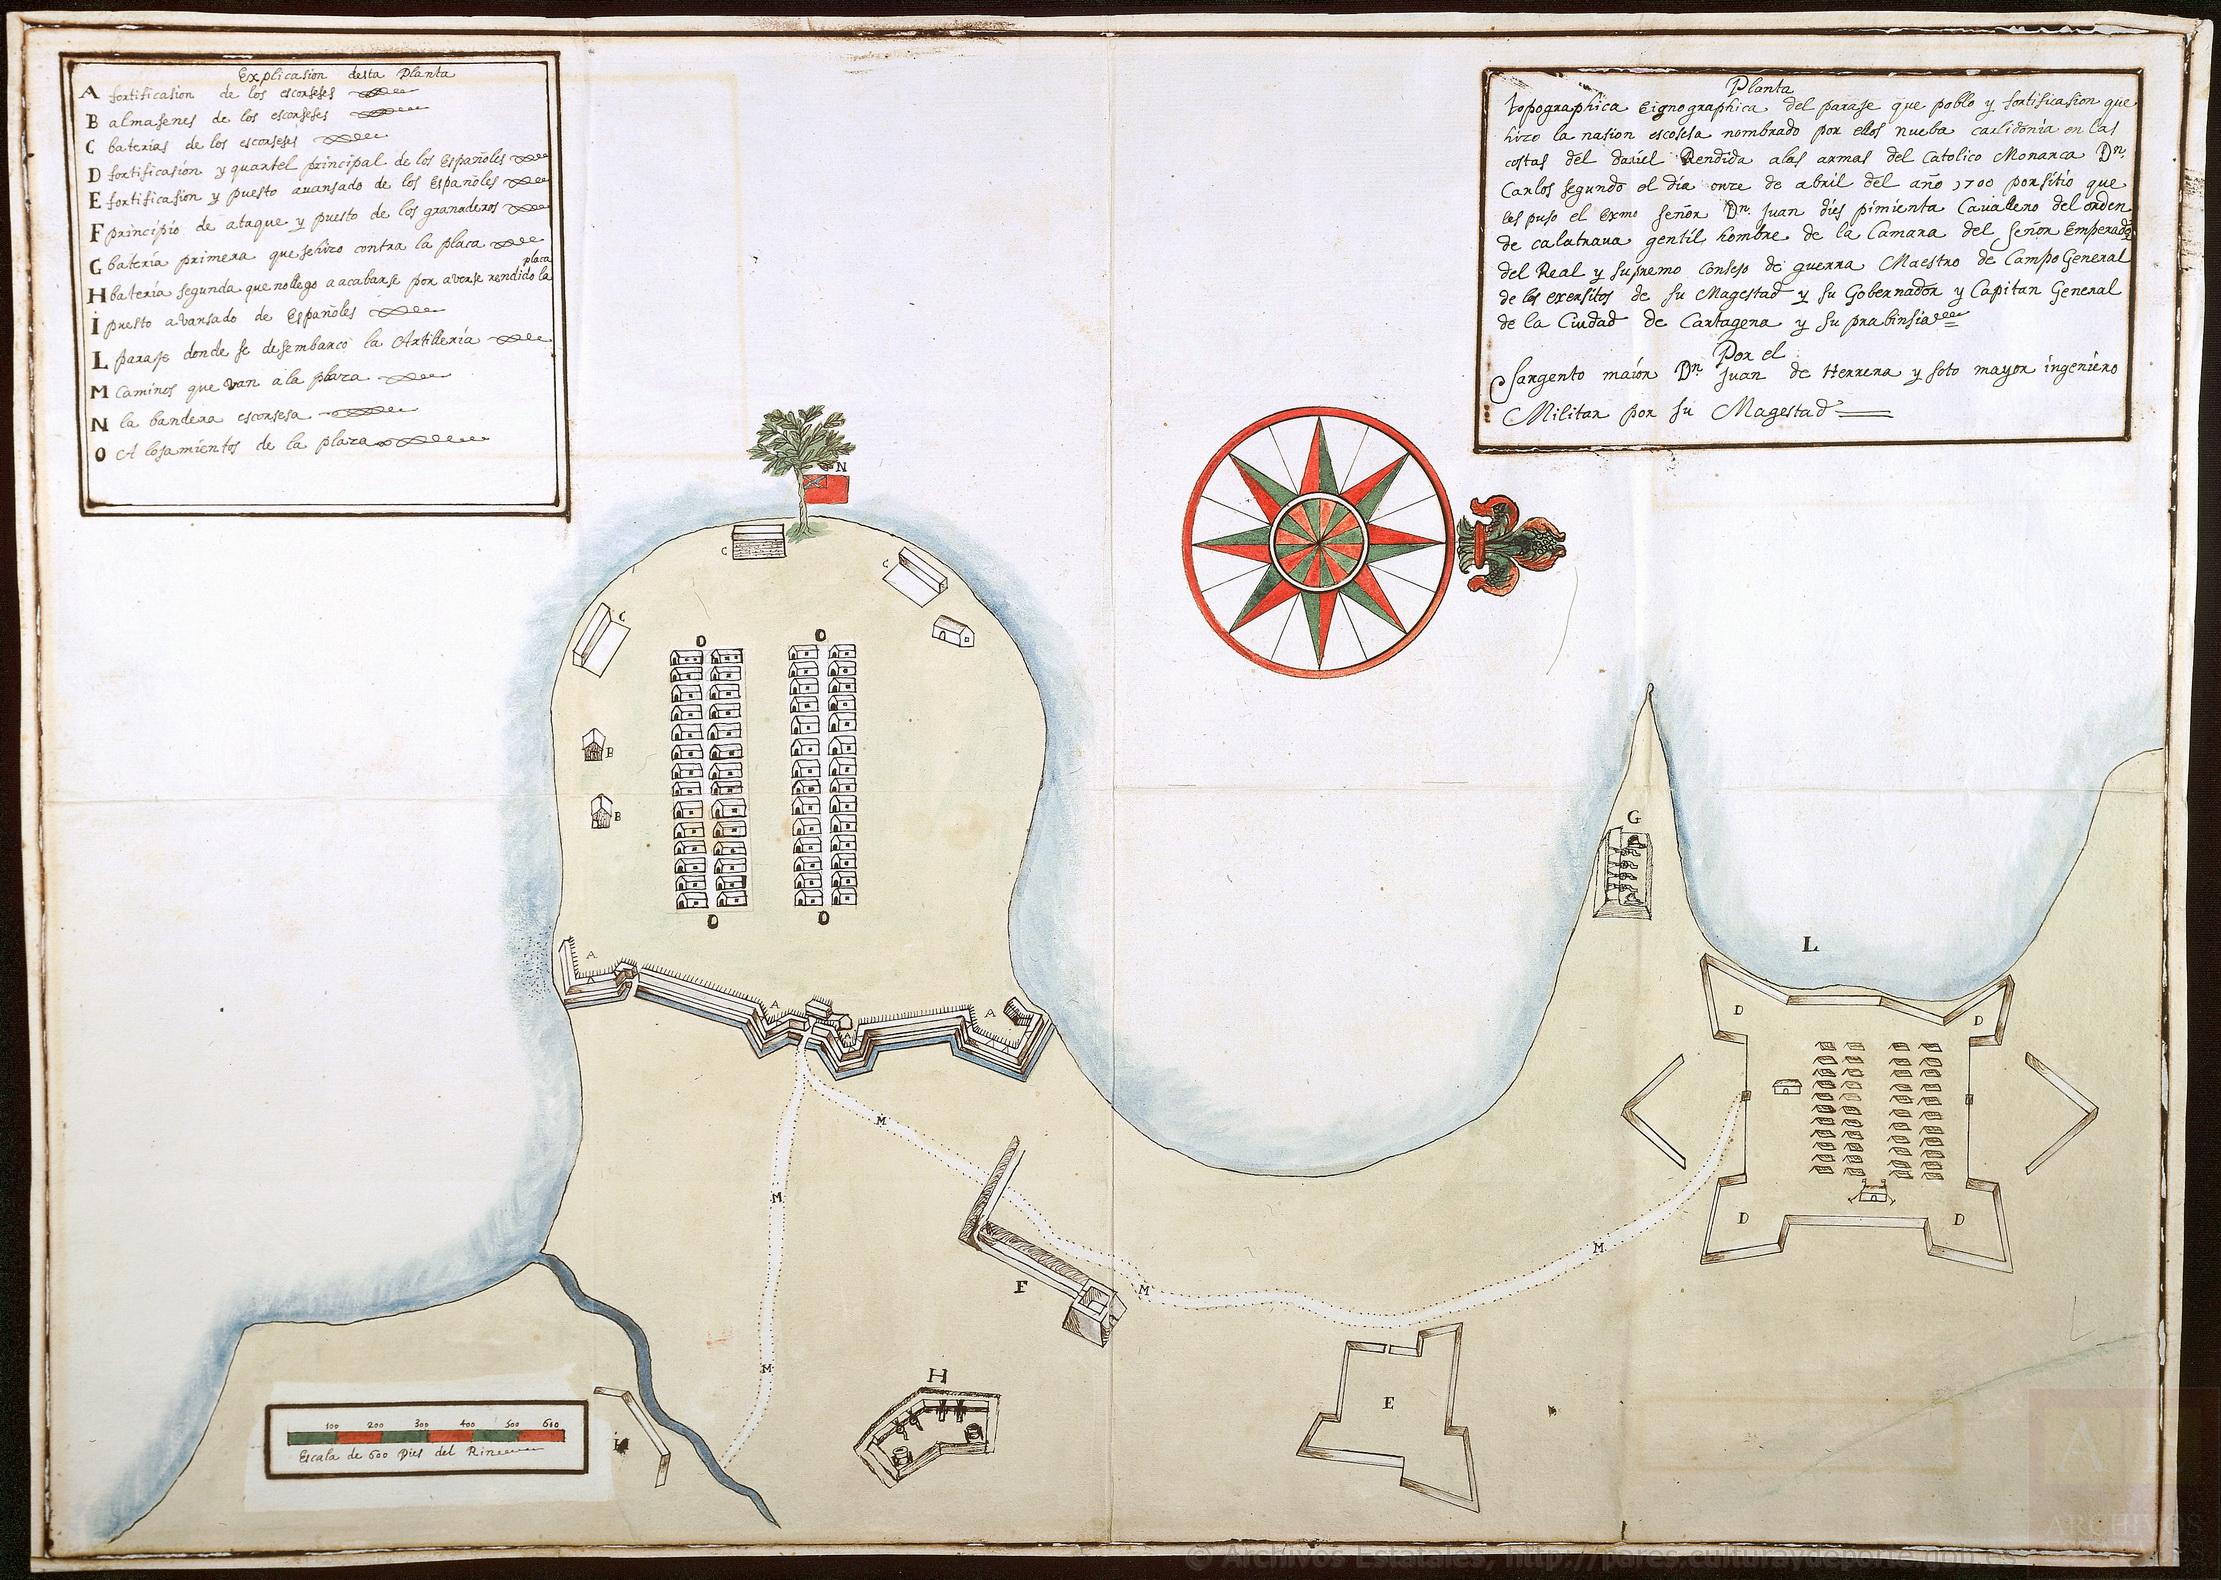 Explicasion desta Planta
A fortificasion de los escorseses
B almasenes de los escorseses
C baterias de los escorseses
D fortificasion y quartel principal de los Españoles
E fortificasion y puesto auansado de los Españoles
F principio de ataque y puesto de los granaderos
G bateria primera que sehizo contra la placa
placa
H bateria segunda que nollego a acabarse por averse rendido la
I puesto avansado de Españoles
L paraje donde se desembarco la Artilleria
M Caminos que van a la plaza
N la bandera escorsesa
O Alojamientos de la plaza
Planta
topographica Eignographica del paraje que poblo y fortificasion que
hizo la nasion escosesa nombrado por ellos nueba calidonia en las
costas del dariel Rendida alas armas del Catolico Monarca Dn.
Carlos segundo el dia onze de abril del año 1700 por sitio que
les puso el Exmo señor Dn. Juan dies pimienta Cavallero del orden
de calatraua gentil hombre de la Camara del señor Emperador
del Real y supremo Consejo de guerra Maestro de Campo General
de los exersitos de su Magestad y su Gobernador y Capitan General
de la Ciudad de Cartagena y su prabinsia
Por el
Sargento maior Dn Juan de Herrera y soto mayor ingeniero
Militar por su Magestad
N
C
C
C
O
O
B
B
O
O
G
A
A
A
A
L
D
D
M
M
D
D
M
F
M
M
H
E
100 200 300 400 500 600
Escala de 600 Pies del Rin
A
ARCHIVOS
© Archivos Estatales, http://pares.culturaydeporte.gob.es